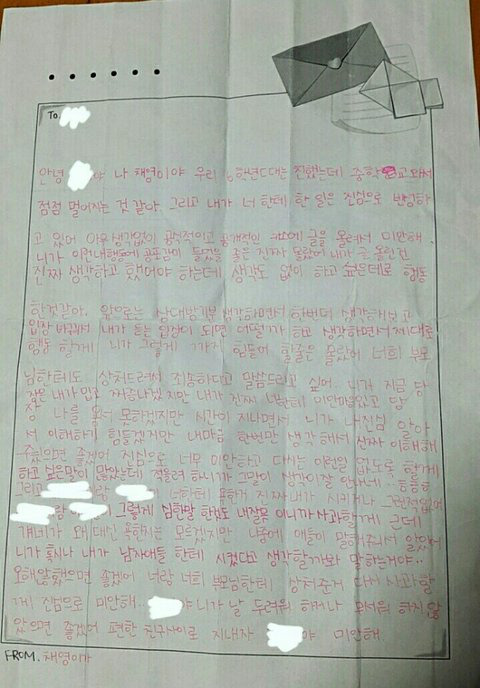 To.
안녕 야 나 채영이야 우리 6학년때는 친했는데 중학교와서
점점 멀어지는 것 같아. 그리고 내가 너한테 한 일은 진심으로 반성하
고 있어 아무생각없이 공식적이고 공개적인 카스에 글을 올려서 미안해.
니가 이런내행동에 공포감이 들었을 줄은 진짜 몰랐어 내가 글 올린건
진짜 생각하고 했어야 하는데 생각도 없이 하고 싶은데로 행동
한것같아. 앞으로는 상대방기분 생각하면서 한번더 생각해보고
입장 바꿔서 내가 듣는 입장이 되면 어떨까 하고 생각하면서 제대로
행동 할게 니가 그렇게 까지 힘들어 할줄은 몰랐어 너희 부모
님한테도 상처드려서 죄송하다고 말씀드리고 싶어. 니가 지금 당
장은 내가 밉고 짜증나겠지만 내가 진짜 너한테 미안해하고있고 당
장 나를 용서 못하겠지만 시간이 지나면서 니가 내진심 알아
서 이해하기 힘들겠지만 내마음 한번만 생각해서 진짜 이해해
주었으면 좋겠어 진심으로 너무 미안하고 다시는 이런일 없도록 할게
하고 싶은말이 많았는데 적을려 하니까 그말이 생각이잘 안나네..
그리고 랑 이 너한테 욕한거 진짜 내가 시키거나 그런적없어
람 이 그렇게 심한말 한것도 내잘못이니까 사과할게 근데
걔네가 왜 대신 욕한지는 모르겠지만 나중에 애들이 말해줘서 알았어
니가 혹시나 내가 남자애들 한테 시켰다고 생각할까봐 말하는거야..
오해안했으면 좋겠어 너랑 너희 부모님한테 상처준거 다시 사과할
게 진심으로 미안해.. 야 니가 날 두려워 하거나 무서워 하지 않
았으면 좋겠어 편한 친구사이로 지내자 야 미안해
FROM. 채영이가